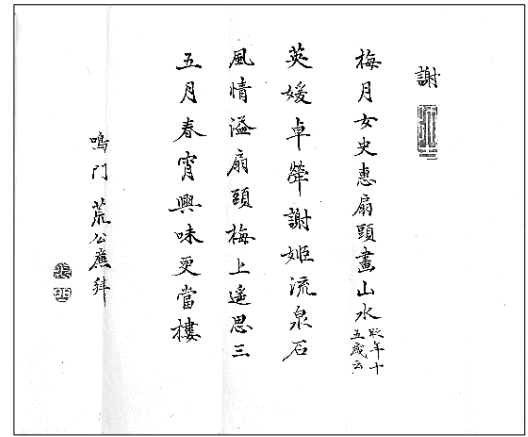 謝
梅月女史惠扇頭畫山水 年十五歲云
英媛卓犖謝姫流泉石
風情溢扇頭梅上遙思三
五月春宵興味更當樓
鳴門 荒公廌拜